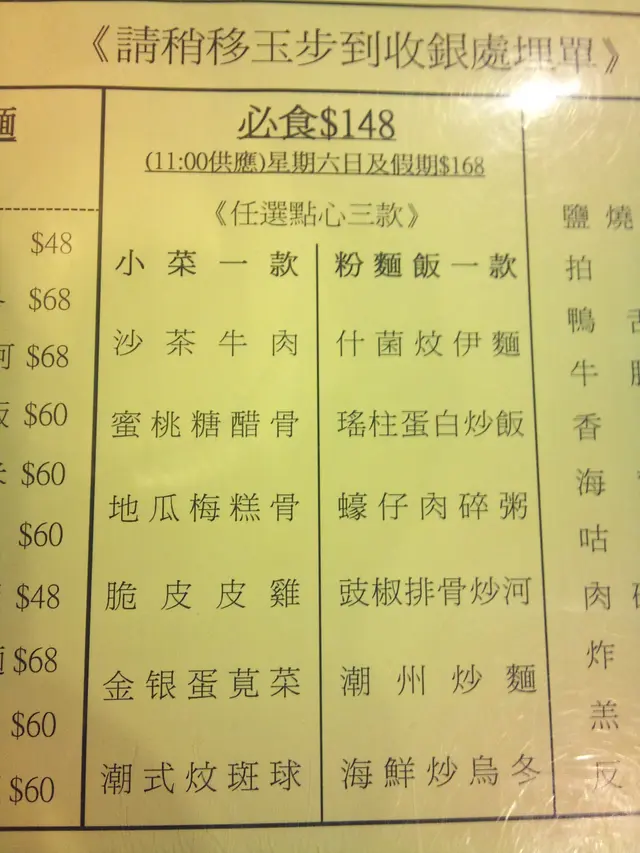 《請稍移玉步到收銀處埋單》
麵
$48
$68
河 $68
飯 $60
$60
$60
$48
$68
$60
$60
必食$148
(11:00供應)星期六日及假期$168
《任選點心三款》
小菜一款
沙茶牛肉
蜜桃糖醋骨
地瓜梅糕骨
脆皮皮雞
金银蛋莧菜
潮式炆斑球
粉麵飯一款
什菌炆伊麵
瑤柱蛋白炒飯
蠔仔肉碎粥
豉椒排骨炒河
潮州炒麵
海鮮炒烏冬
鹽燒
拍
鴨舌
牛
香
海
咕
肉
炸
羔
反